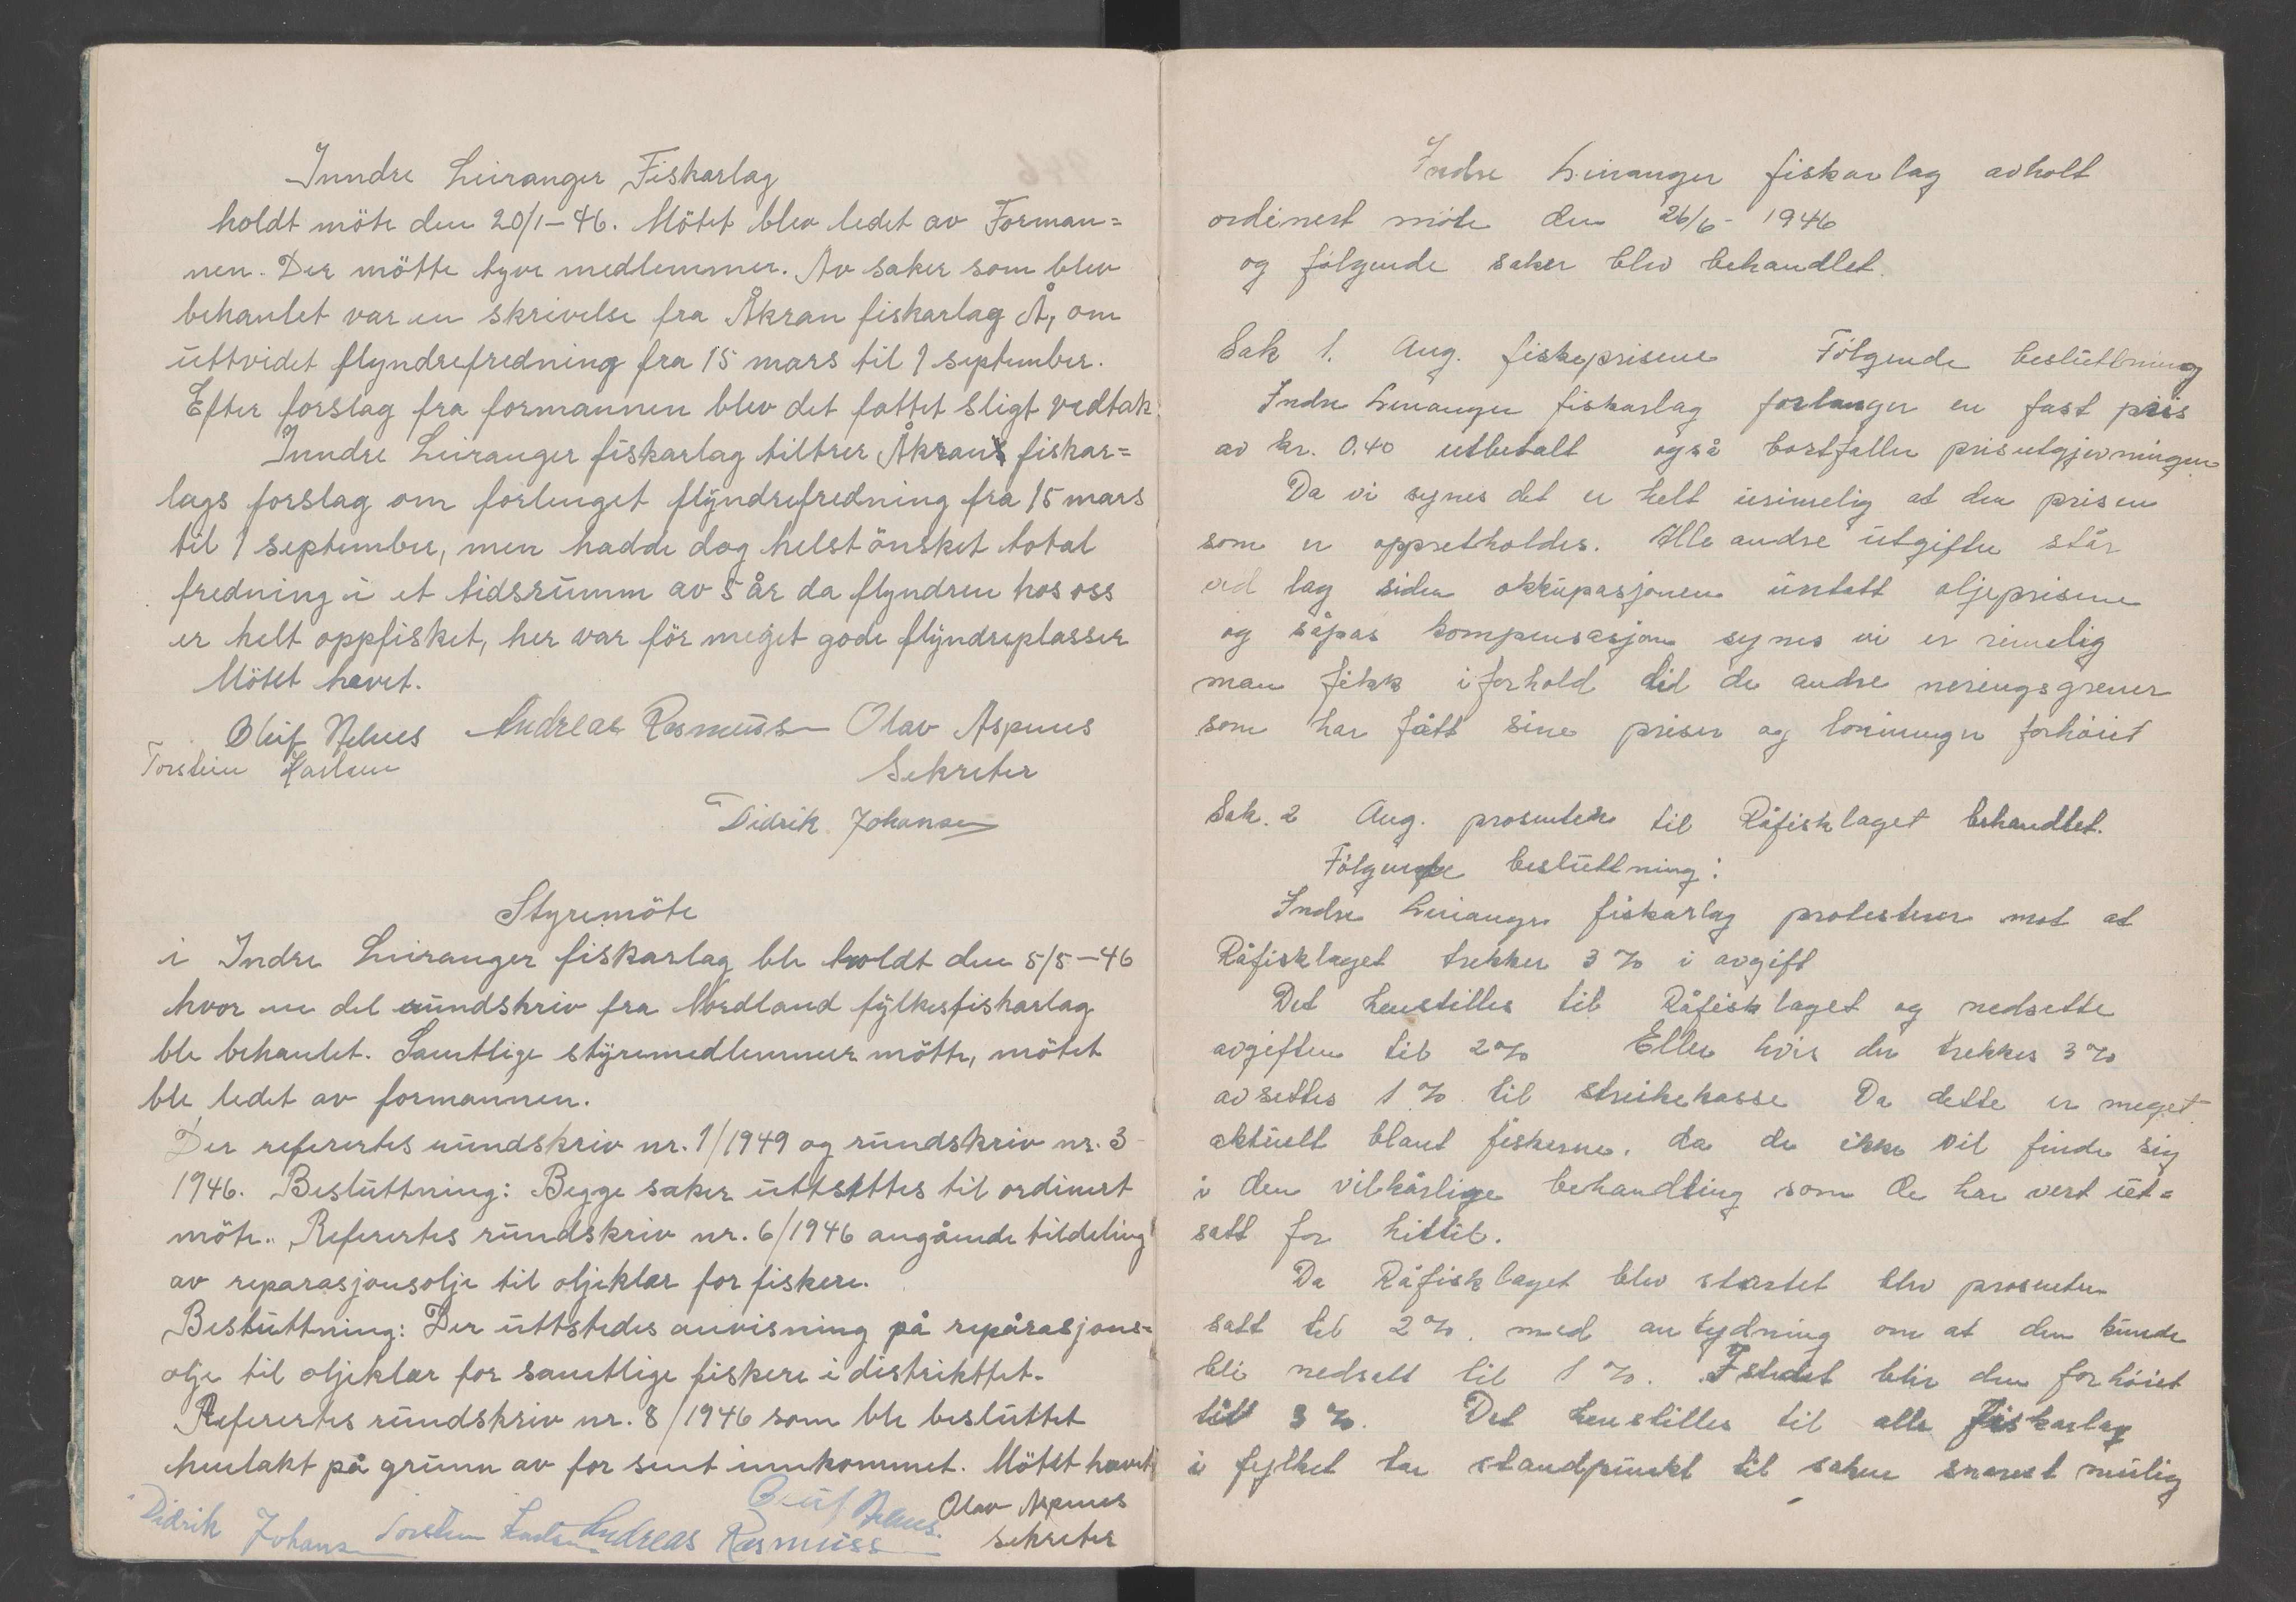 Inndre Leiranger Fiskarlag
holdt möte den 20/1-46. Mötet blev ledet av Forman=
nen. Der mötte tyve medlemmer. Av saker som blev
behanlet var en skrivelse fra Åkran fiskarlag Å, om
uttvidet flyndrefredning fra 15 mars til 1 september.
Efter forslag fra formannen blev det fattet sligt vedtak
Inndre Leiranger fiskarlag tiltrer Åkran fiskar=
lags forslag om forlenget flyndrefredning fra 15 mars
til 1 september, men hadde dog helst önsket total
fredning i et tidsrumm av 5 år da flyndren hos oss
er helt oppfisket, her var för meget gode flyndreplasser
Mötet hevet.
Oluf Andreas Rasmuss Olav Aspnes
Torstein Karlsen Sekreter
Didrik Johansen
Styremöte
i Indre Leiranger fiskarlag ble holdt den 5/5-46
hvor en del rundskriv fra Nordland fylkesfiskarlag
ble behanlet. Samtlige styremedlemmer mötte, mötet
ble ledet av formannen.
Der refertes rundskriv nr. 1/1949 og rundskriv nr. 3
1946. Besluttning: Begge saker uttsettes til ordinert
möte. Refertes rundskriv nr. 6/1946 angående tildeling
av reparasjonsolje til oljeklær for fiskere.
Besluttning: Der uttstedes anvisning på reparasjons=
olje til oljeklær for samtlige fiskere i distrikttet.
Refertes rundskriv nr. 8/1946 som ble besluttet
henlakt på grunn av for sent innkommet. Mötet hevet
Oluf Olav Aspnes
Didrik Johansen Torstein Karlsen Andreas Rasmuss Sekreter
Indre Leiranger fiskarlag avholt
ordinert möte den 26/6- 1946
og følgende saker blev behandlet.
Sak 1. Ang. fiskeprisene Følgende besluttning
Indre Leiranger fiskarlag forlanger en fast pris
av kr. 0.40 utbetalt også bortfaller prisutgjevningen
Da vi synes det er helt urimelig at den prisen
som er oppretholdes. Alle andre utgifter står
ved lag siden okkupasjonen untatt oljeprisene
og såpas kompensasjon synes vi er rimelig
man fikk i forhold til de andre neringsgrener
som har fått sine priser og lønninger forhöiet
Sak. 2 Ang. prosenten til Råfisklaget behandlet.
Følgende besluttning:
Indre Leiranger fiskarlag protesterer mot at
Råfisklaget trekker 3% i avgift
Det henstilles til Råfisklaget og nedsette
avgiften til 2% Eller hvis der trekkes 3%
avsettes 1% til streikekasse Da dette er meget
aktuelt blant fiskerne, da de ikke vil finde sig
i den vilkårlige behandling som de har vert ut=
satt for hittil.
Da Råfisklaget blev startet blev prosenten
satt til 2%. med antydning om at den kunde
bli nedsatt til 1%. Istedet blir den forhöiet
till 3%. Det henstilles til alle fiskarlag
i fylket ta standpunkt til saken snarest mulig